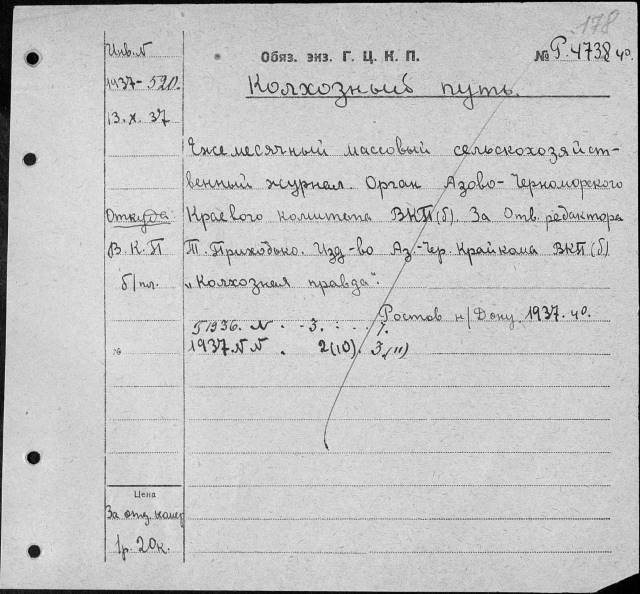 178
Инв. N
1937-520.
13.X.37
Обяз. экз. Г. Ц. К. П.
№ Р.4738 40.
Колхозный путь.
Ежемесячный массовый сельскохозяйст-
венный журнал. Орган Азово-Черноморского
Краевого комитета ВКП(б). За Отв. редактора
Т. Приходько. Изд-во Аз.-Чер. Крайкома ВКП(б)
„Колхозная правда".
Ростов н/Дону. 1937. 40.
1936. N 3.
1937. NN. 2(10). 3(11)
Откуда
В. К. П
б/пл.
№
Цена
За отд. номер
1р. 20к.